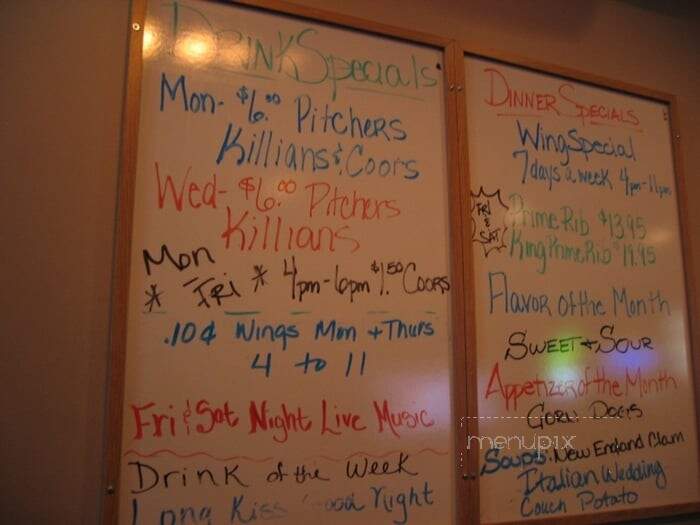 DRINK Specials
Mon- $6.00 Pitchers
Killians & Coors
Wed- $6.00 Pitchers
Killians
Mon
* - Fri * 4pm-6pm $1.50 Coors
.10¢ Wings Mon + Thurs
4 to 11
Fri & Sat Night Live Music
Drink of the Week
Long Kiss Good Night
DINNER SPECIALS
Wing Special
7 days a week 4pm-11pm
FRI
&
SAT
Prime Rib $13.95
King Prime Rib $19.95
Flavor of the Month
SWEET + SOUR
Appetizer of the Month
DOGS
Soups: New England Clam
Italian Wedding
Couch Potato
menupix